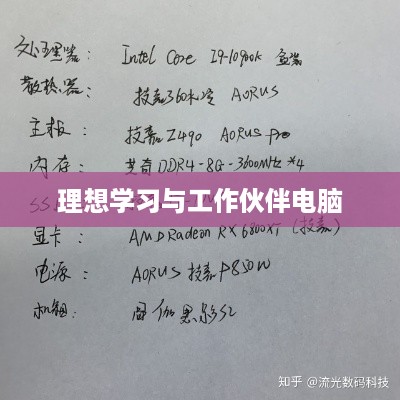 处理器: Intel Core I9-10900k 盒装
散热器: 技嘉360水冷 AORUS
主板: 技嘉Z490 AORUS Pro
内存: 芝奇DDR4-8G-3600MHz *4
理想学习与工作伙伴电脑
SS
显卡: AMD Radeon RX 6800XT (技嘉)
电源: AORUS 技嘉P850W
机箱:
知乎 @流光数码科技